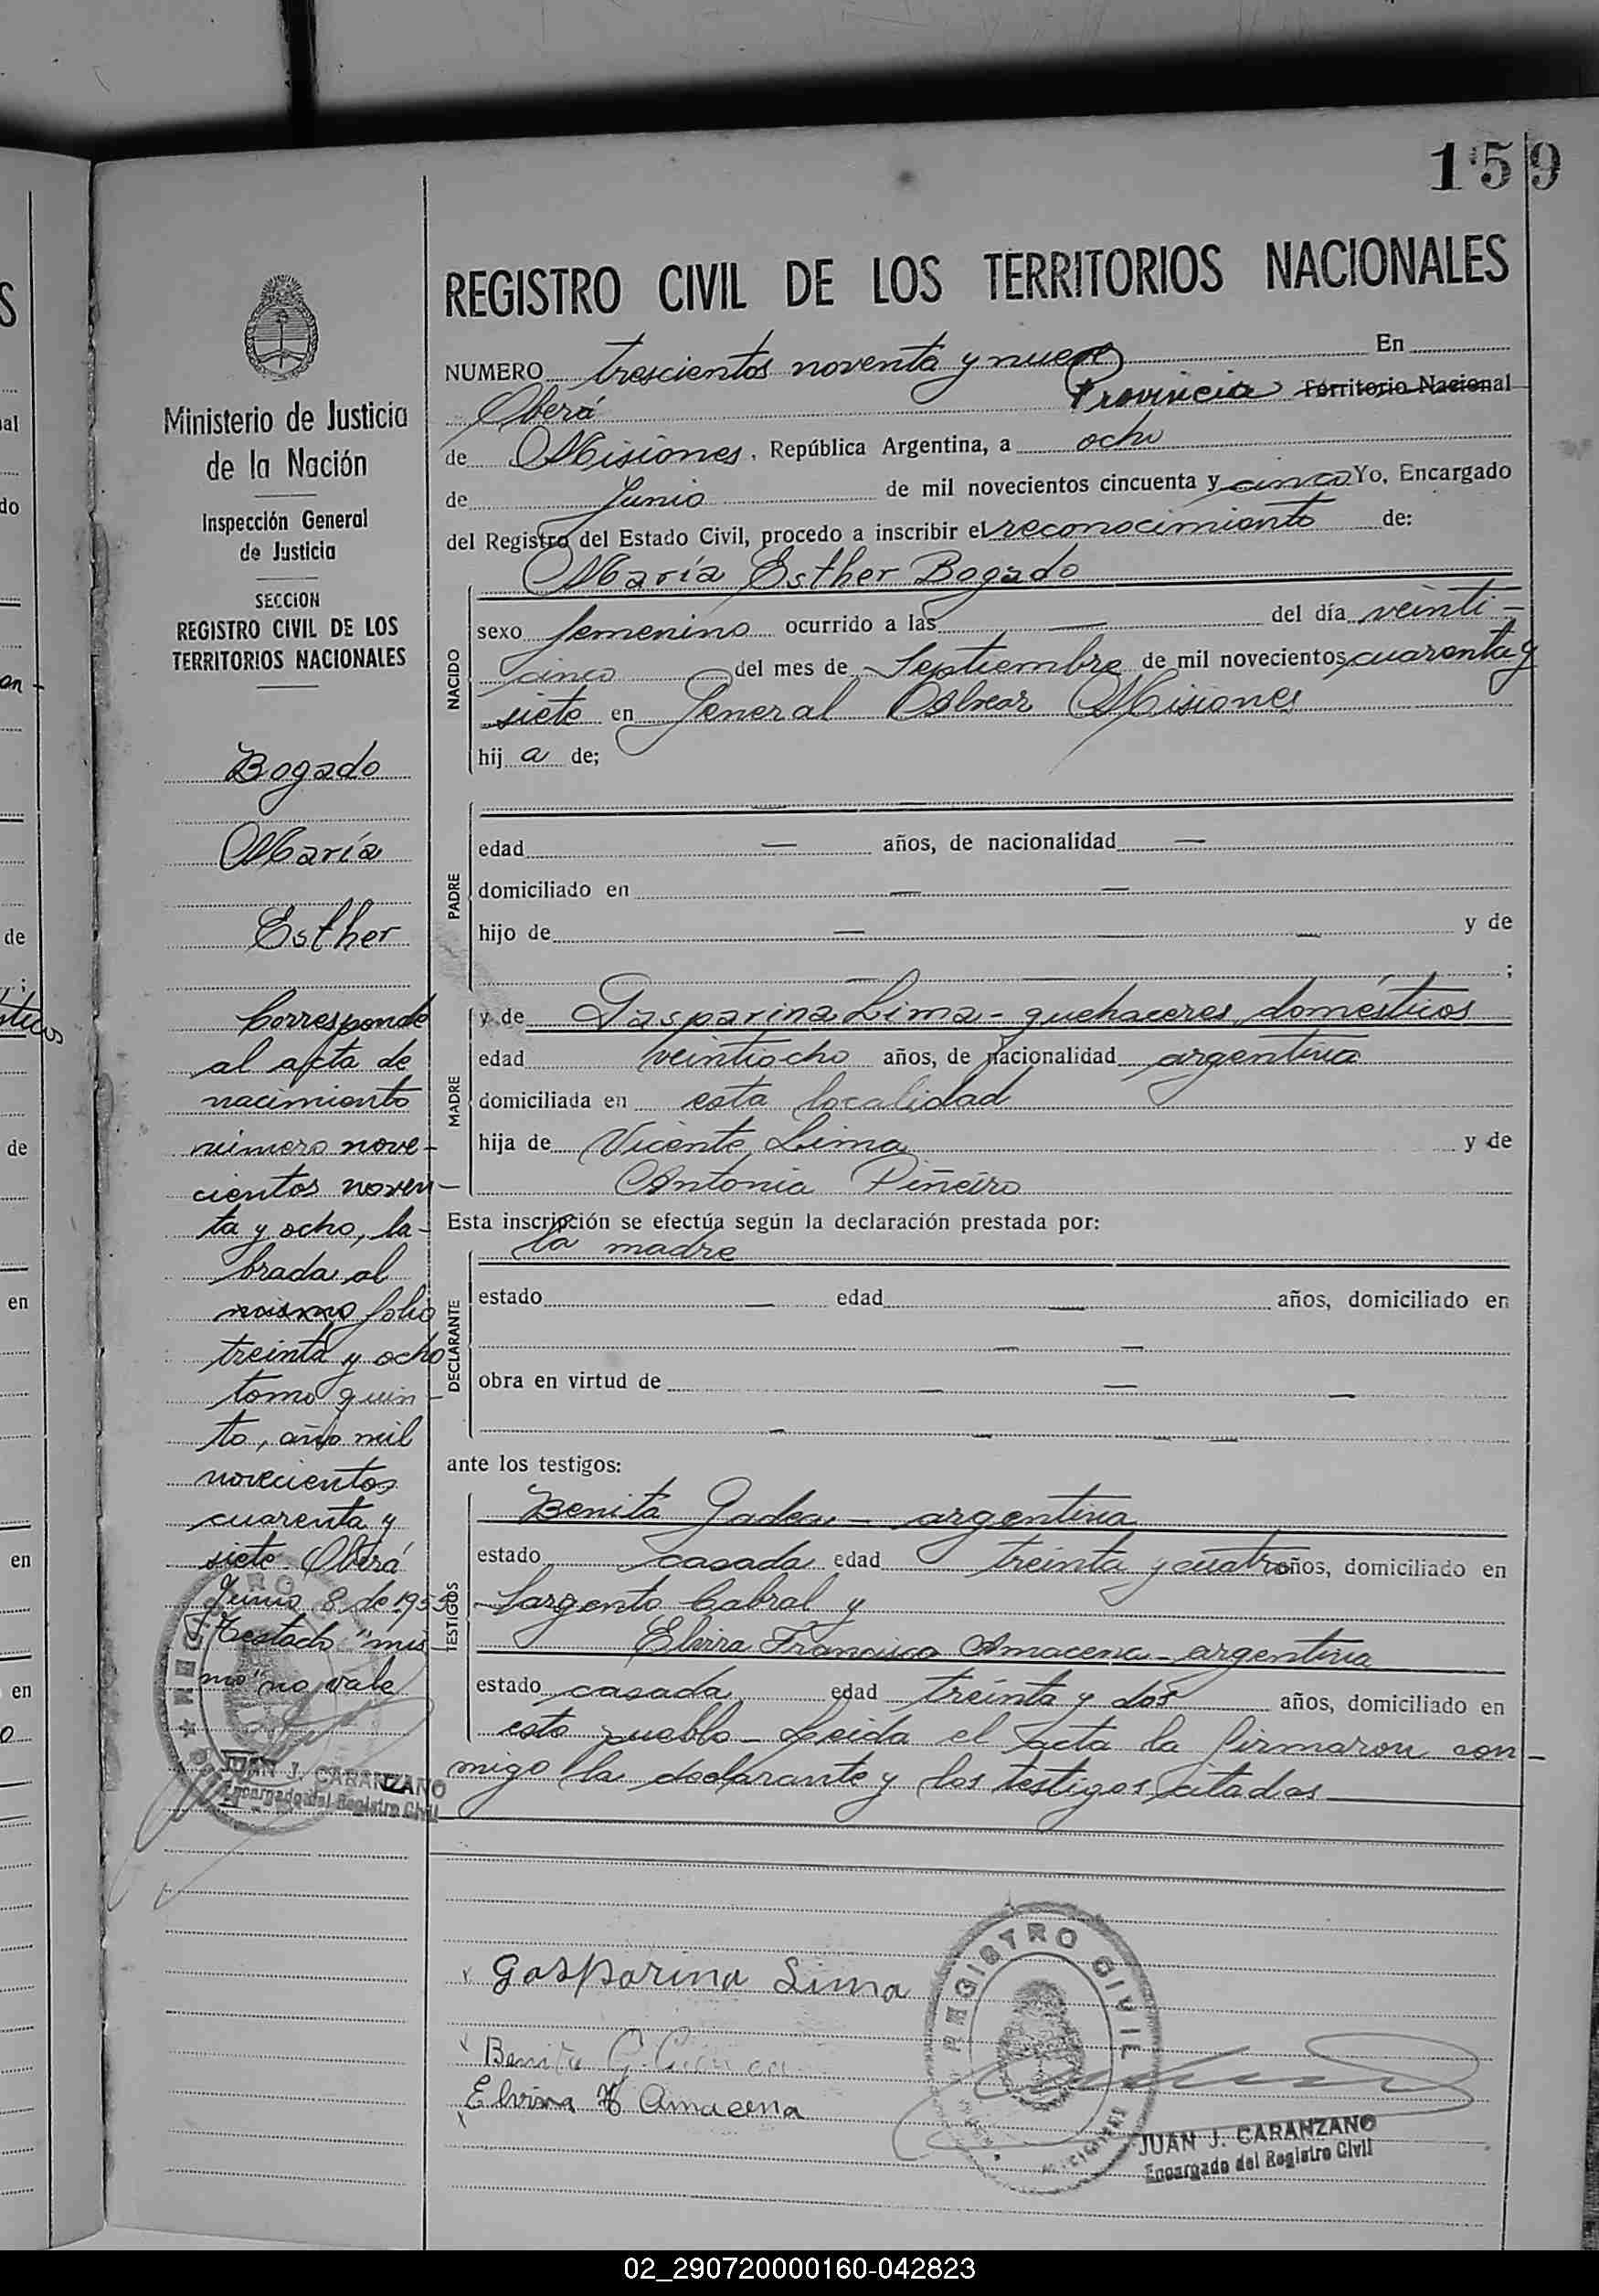 159
REGISTRO CIVIL DE LOS TERRITORIOS NACIONALES
NUMERO trescientos noventa y nueve En
Oberá Provincia Territorio Nacional
de Misiones, República Argentina, a ocho
de Junio de mil novecientos cincuenta y cinco Yo, Encargado
del Registro del Estado Civil, procedo a inscribir el reconocimiento de:
María Esther Bogado
NACIDO
sexo femenino ocurrido a las — del día veinti-
cinco del mes de Septiembre de mil novecientos cuarenta y
siete en General Alvear Misiones
hij a de;
PADRE
edad — años, de nacionalidad —
domiciliado en — —
hijo de — — — y de
— — ;
MADRE
y de Gasparina Lima - quehaceres domésticos
edad veintiocho años, de nacionalidad argentina
domiciliada en esta localidad
hija de Vicente Lima y de
Antonia Piñeiro
Esta inscripción se efectúa según la declaración prestada por:
la madre
DECLARANTE
estado — edad — años, domiciliado en
— —
obra en virtud de — — —
— — — —
ante los testigos:
TESTIGOS
Benita Gadea - argentina
estado casada edad treinta y cuatro años, domiciliado en
Sargento Cabral y
Elvira Francisca Amacena - argentina
estado casada edad treinta y dos años, domiciliado en
este pueblo - Leída el acta la firmaron con-
migo la declarante y los testigos citados
Gasparina Lima
Benita G.
Elvira Amacena
REGISTRO CIVIL
MISIONES
JUAN J. CARANZANO
Encargado del Registro Civil
Ministerio de Justicia
de la Nación
Inspección General
de Justicia
SECCION
REGISTRO CIVIL DE LOS
TERRITORIOS NACIONALES
Bogado
María
Esther
Corresponde
al acta de
nacimiento
número nove-
cientos noven-
ta y ocho, la-
brada al
mismo folio
treinta y ocho
tomo quin-
to, año mil
novecientos
cuarenta y
siete. Oberá
Junio 8 de 1955
Testado "mis
mo" no vale
JUAN J. CARANZANO
Encargado del Registro Civil
02_290720000160-042823